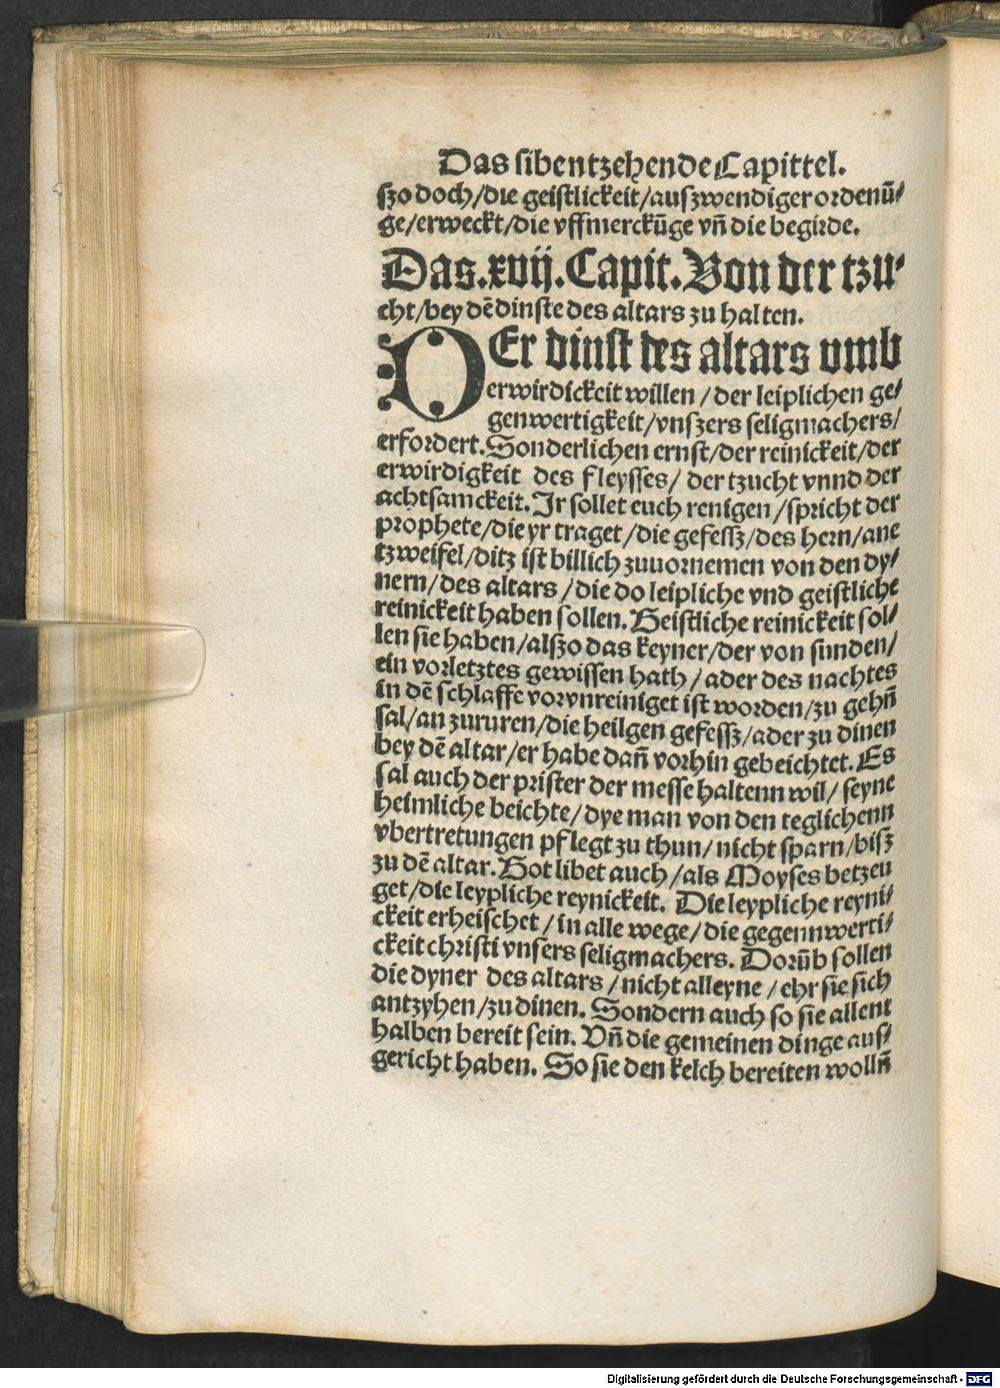 Das sibentzehende Capittel.
szo doch/die geistlickeit/auszwendiger ordenū⸗
ge/erweckt/die vffmerckūge vn̄ die begirde.
Das.xvij.Capit.Von der tzu⸗
cht/bey dē dinste des altars zu halten.
DEr dinst des altars vmb
erwirdickeit willen/der leiplichen ge⸗
genwertigkeit/vnszers seligmachers/
erfordert.Sonderlichen ernst/der reinickeit/der
erwirdigkeit des fleysses/der tzucht vnnd der
achtsamckeit.Ir sollet euch renigen/spricht der
prophete/die yr traget/die gefessz/des hern/ane
tzweifel/ditz ist billich zuuornemen von den dy⸗
nern/des altars/die do leipliche vnd geistliche
reinickeit haben sollen.Geistliche reinickeit sol⸗
len sie haben/alszo das keyner/der von sunden/
ein vorletztes gewissen hath/ader des nachtes
in dē schlaffe vorvnreiniget ist worden/zu gehn̄
sal/an zururen/die heilgen gefessz/ader zu dinen
bey dē altar/er habe dan̄ vorhin gebeichtet.Es
sal auch der prister der messe haltenn wil/seyne
heimliche beichte/dye man von den teglichenn
vbertretungen pflegt zu thun/nicht sparn/bisz
zu dē altar.Got libet auch/als Moyses betzeu
get/die leypliche reynickeit. Die leypliche reyni⸗
ckeit erheischet/in alle wege/die gegennwerti⸗
ckeit christi vnsers seligmachers.Dorūb sollen
die dyner des altars/nicht alleyne/ehr sie sich
antzyhen/zu dinen.Sondern auch so sie allent
halben bereit sein.Vn̄ die gemeinen dinge aus⸗
gericht haben.So sie den kelch bereiten wolln̄
Digitalisierung gefördert durch die Deutsche Forschungsgemeinschaft - DFG